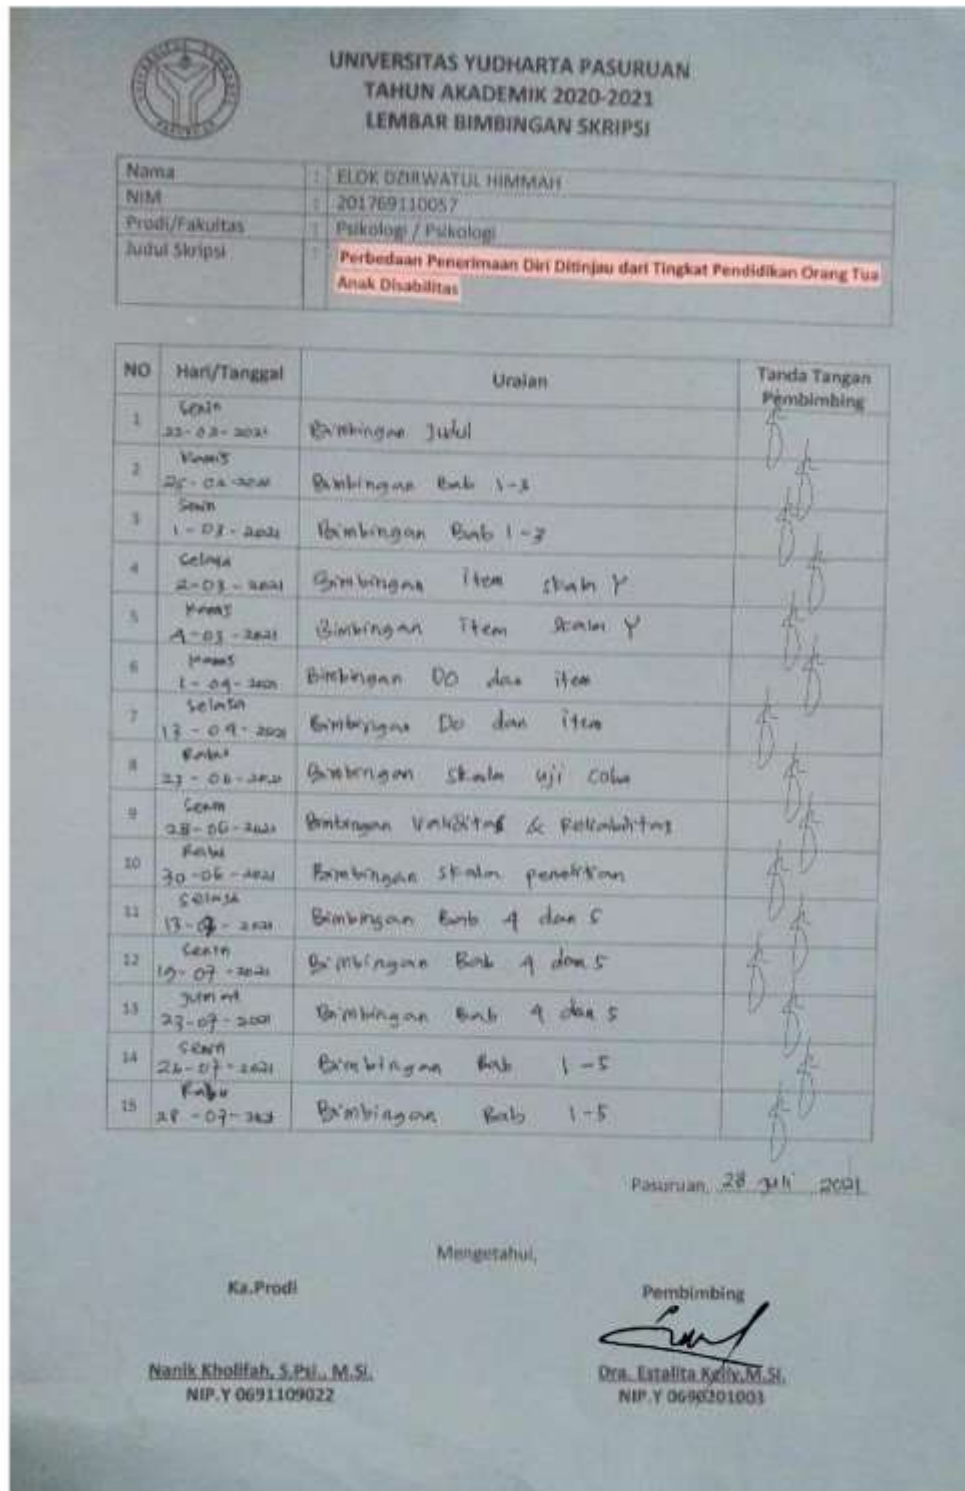 UNIVERSITAS YUDHARTA PASURUAN
TAHUN AKADEMIK 2020-2021
LEMBAR BIMBINGAN SKRIPSI
Nama : ELOK DZURWATUL HIMMAH
NIM : 201769110057
Prodi/Fakultas : Psikologi / Psikologi
Judul Skripsi : Perbedaan Penerimaan Diri Ditinjau dari Tingkat Pendidikan Orang Tua
Anak Disabilitas
NO Hari/Tanggal Uraian Tanda Tangan
Pembimbing
Senin
1 22-02-2021 Bimbingan Judul
Kamis
2 25-02-2021 Bimbingan Bab 1-3
Senin
3 1-03-2021 Bimbingan Bab 1-3
Selasa
4 2-03-2021 Bimbingan item skala Y
Kamis
5 4-03-2021 Bimbingan item skala Y
Kamis
6 1-04-2021 Bimbingan DO dan item
Selasa
7 13-04-2021 Bimbingan Do dan item
Rabu
8 23-06-2021 Bimbingan skala uji coba
Senin
9 28-06-2021 Bimbingan Validitas & Reliabilitas
Rabu
10 30-06-2021 Bimbingan skala penelitian
Selasa
11 13-07-2021 Bimbingan Bab 4 dan 5
Senin
12 19-07-2021 Bimbingan Bab 4 dan 5
Jum'at
13 23-07-2021 Bimbingan Bab 4 dan 5
Senin
14 26-07-2021 Bimbingan Bab 1-5
Rabu
15 28-07-2021 Bimbingan Bab 1-5
Pasuruan, 28 Juli 2021
Mengetahui,
Ka.Prodi Pembimbing
Nanik Kholifah, S.Psi., M.Si. Dra. Estalita Kelly, M.Si.
NIP.Y 0691109022 NIP.Y 0690201003